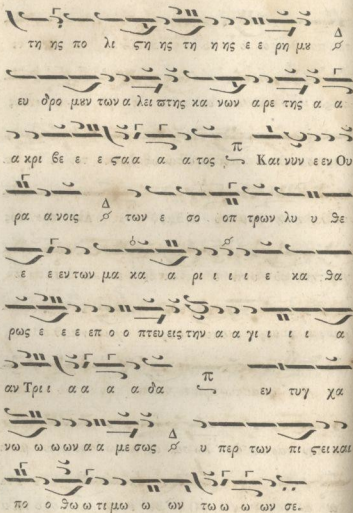 τη ης πο λι ϛη ης τη η ης ε ε ρη μου Δ
ευ δρο μουν των α λει πτης κα νων α ρε της α α
α κρι βε ε ε ϛα α α α τος π Και νυν ε εν Ου
ρα α νοις Δ των ε σο οπ τρων λυ υ θε
ε ε εν των μα κα α ρι ι ι ι ε κα θα
ρως ε ε ε επ ο ο πτευ εις την α α γι ι ι ι α
αν Τρι ι α α α α δα π εν τυγ χα
νω ω ω ων α α με σως Δ υ περ των πι ϛει και
πο ο θω ω τι μω ω ων τω ω ω ων σε.